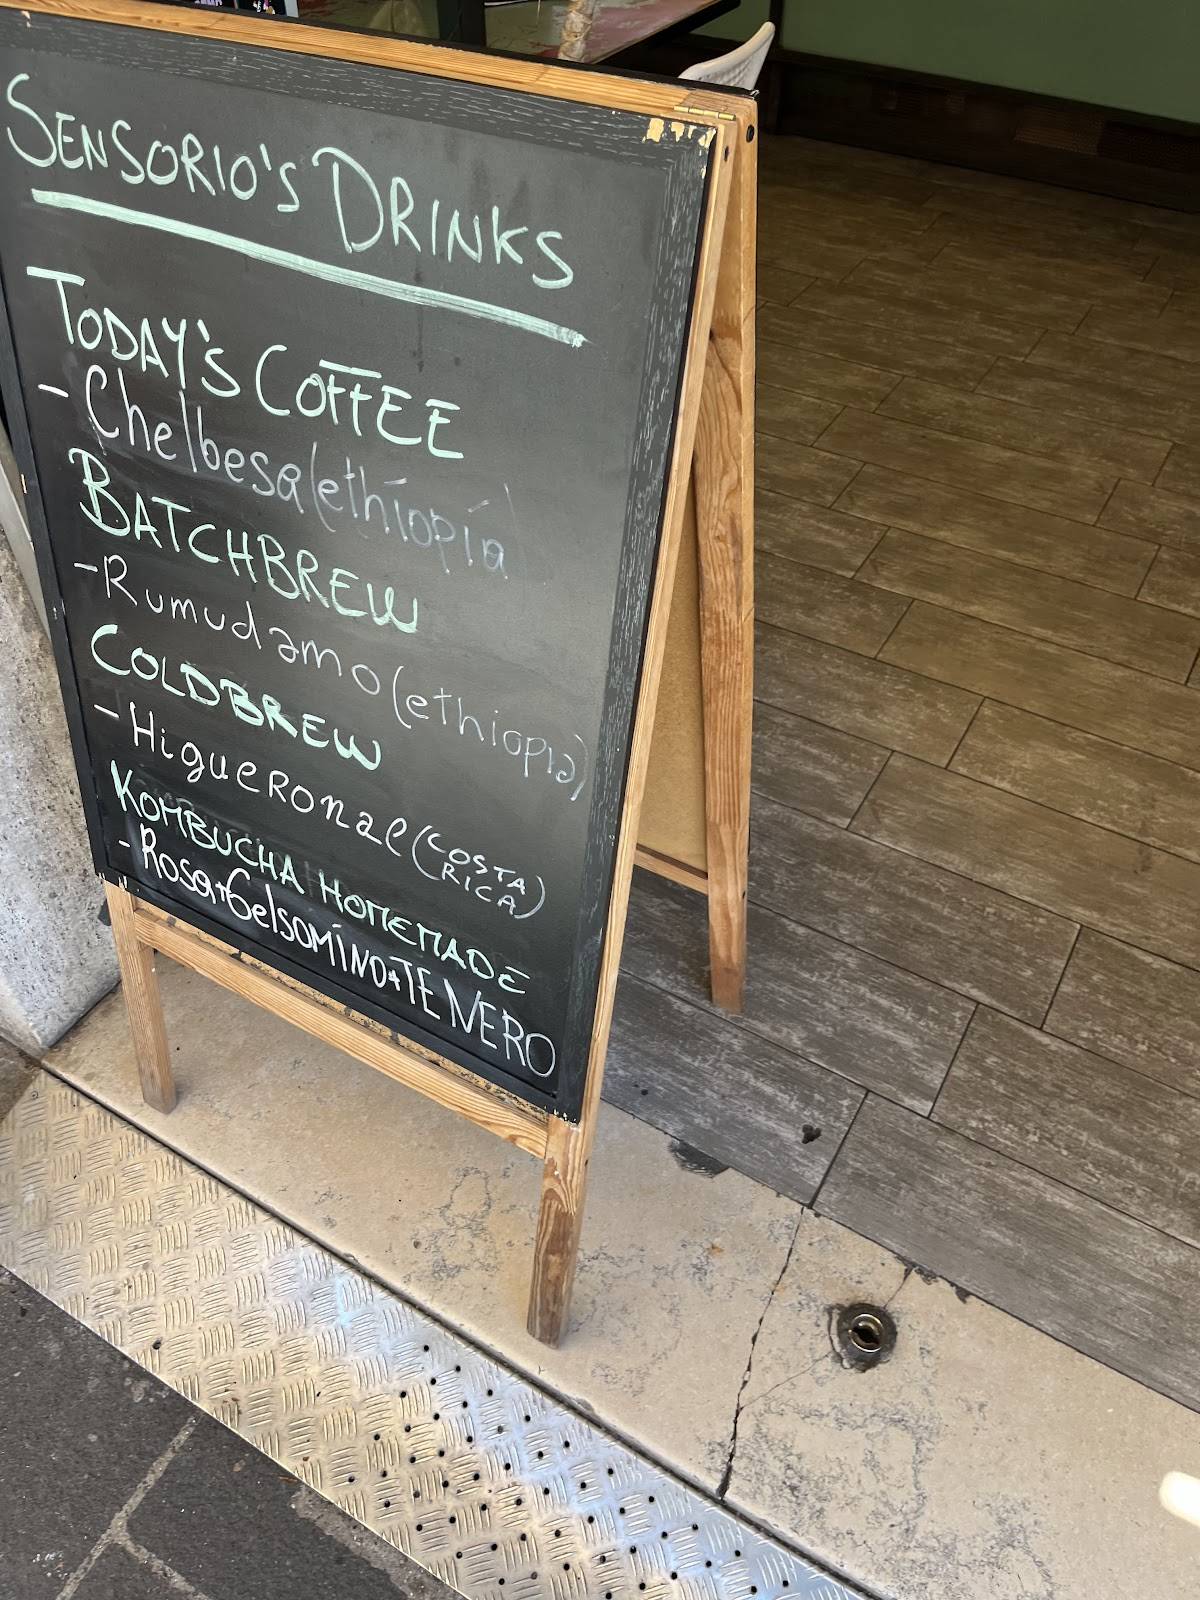 SENSORIO'S DRINKS
TODAY'S COFFEE
- Chelbesa (ethiopia)
BATCHBREW
- Rumudamo (ethiopia)
COLDBREW
- HigueRonal (COSTA RICA)
KOMBUCHA HOMEMADE
- Rosa+Gelsomino+TE NERO